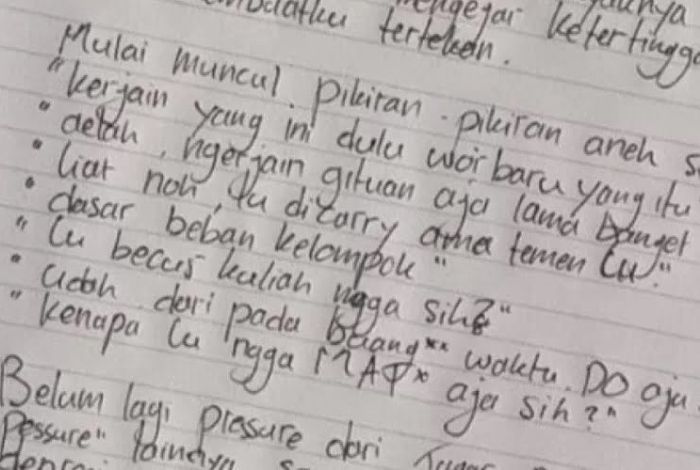 mengejar ketertingga
tertekan.
Mulai muncul pikiran-pikiran aneh s
"kerjain yang ini dulu woi baru yang itu
"aelah, ngerjain gituan aja lama banget
"liat noh, lu dicarry ama temen lu."
"dasar beban kelompok"
"lu becus kuliah ngga sih?"
"udah dari pada buang** waktu. DO aja.
"kenapa lu ngga MAT* aja sih?"
Belum lagi pressure dari
Pessure" lainnya